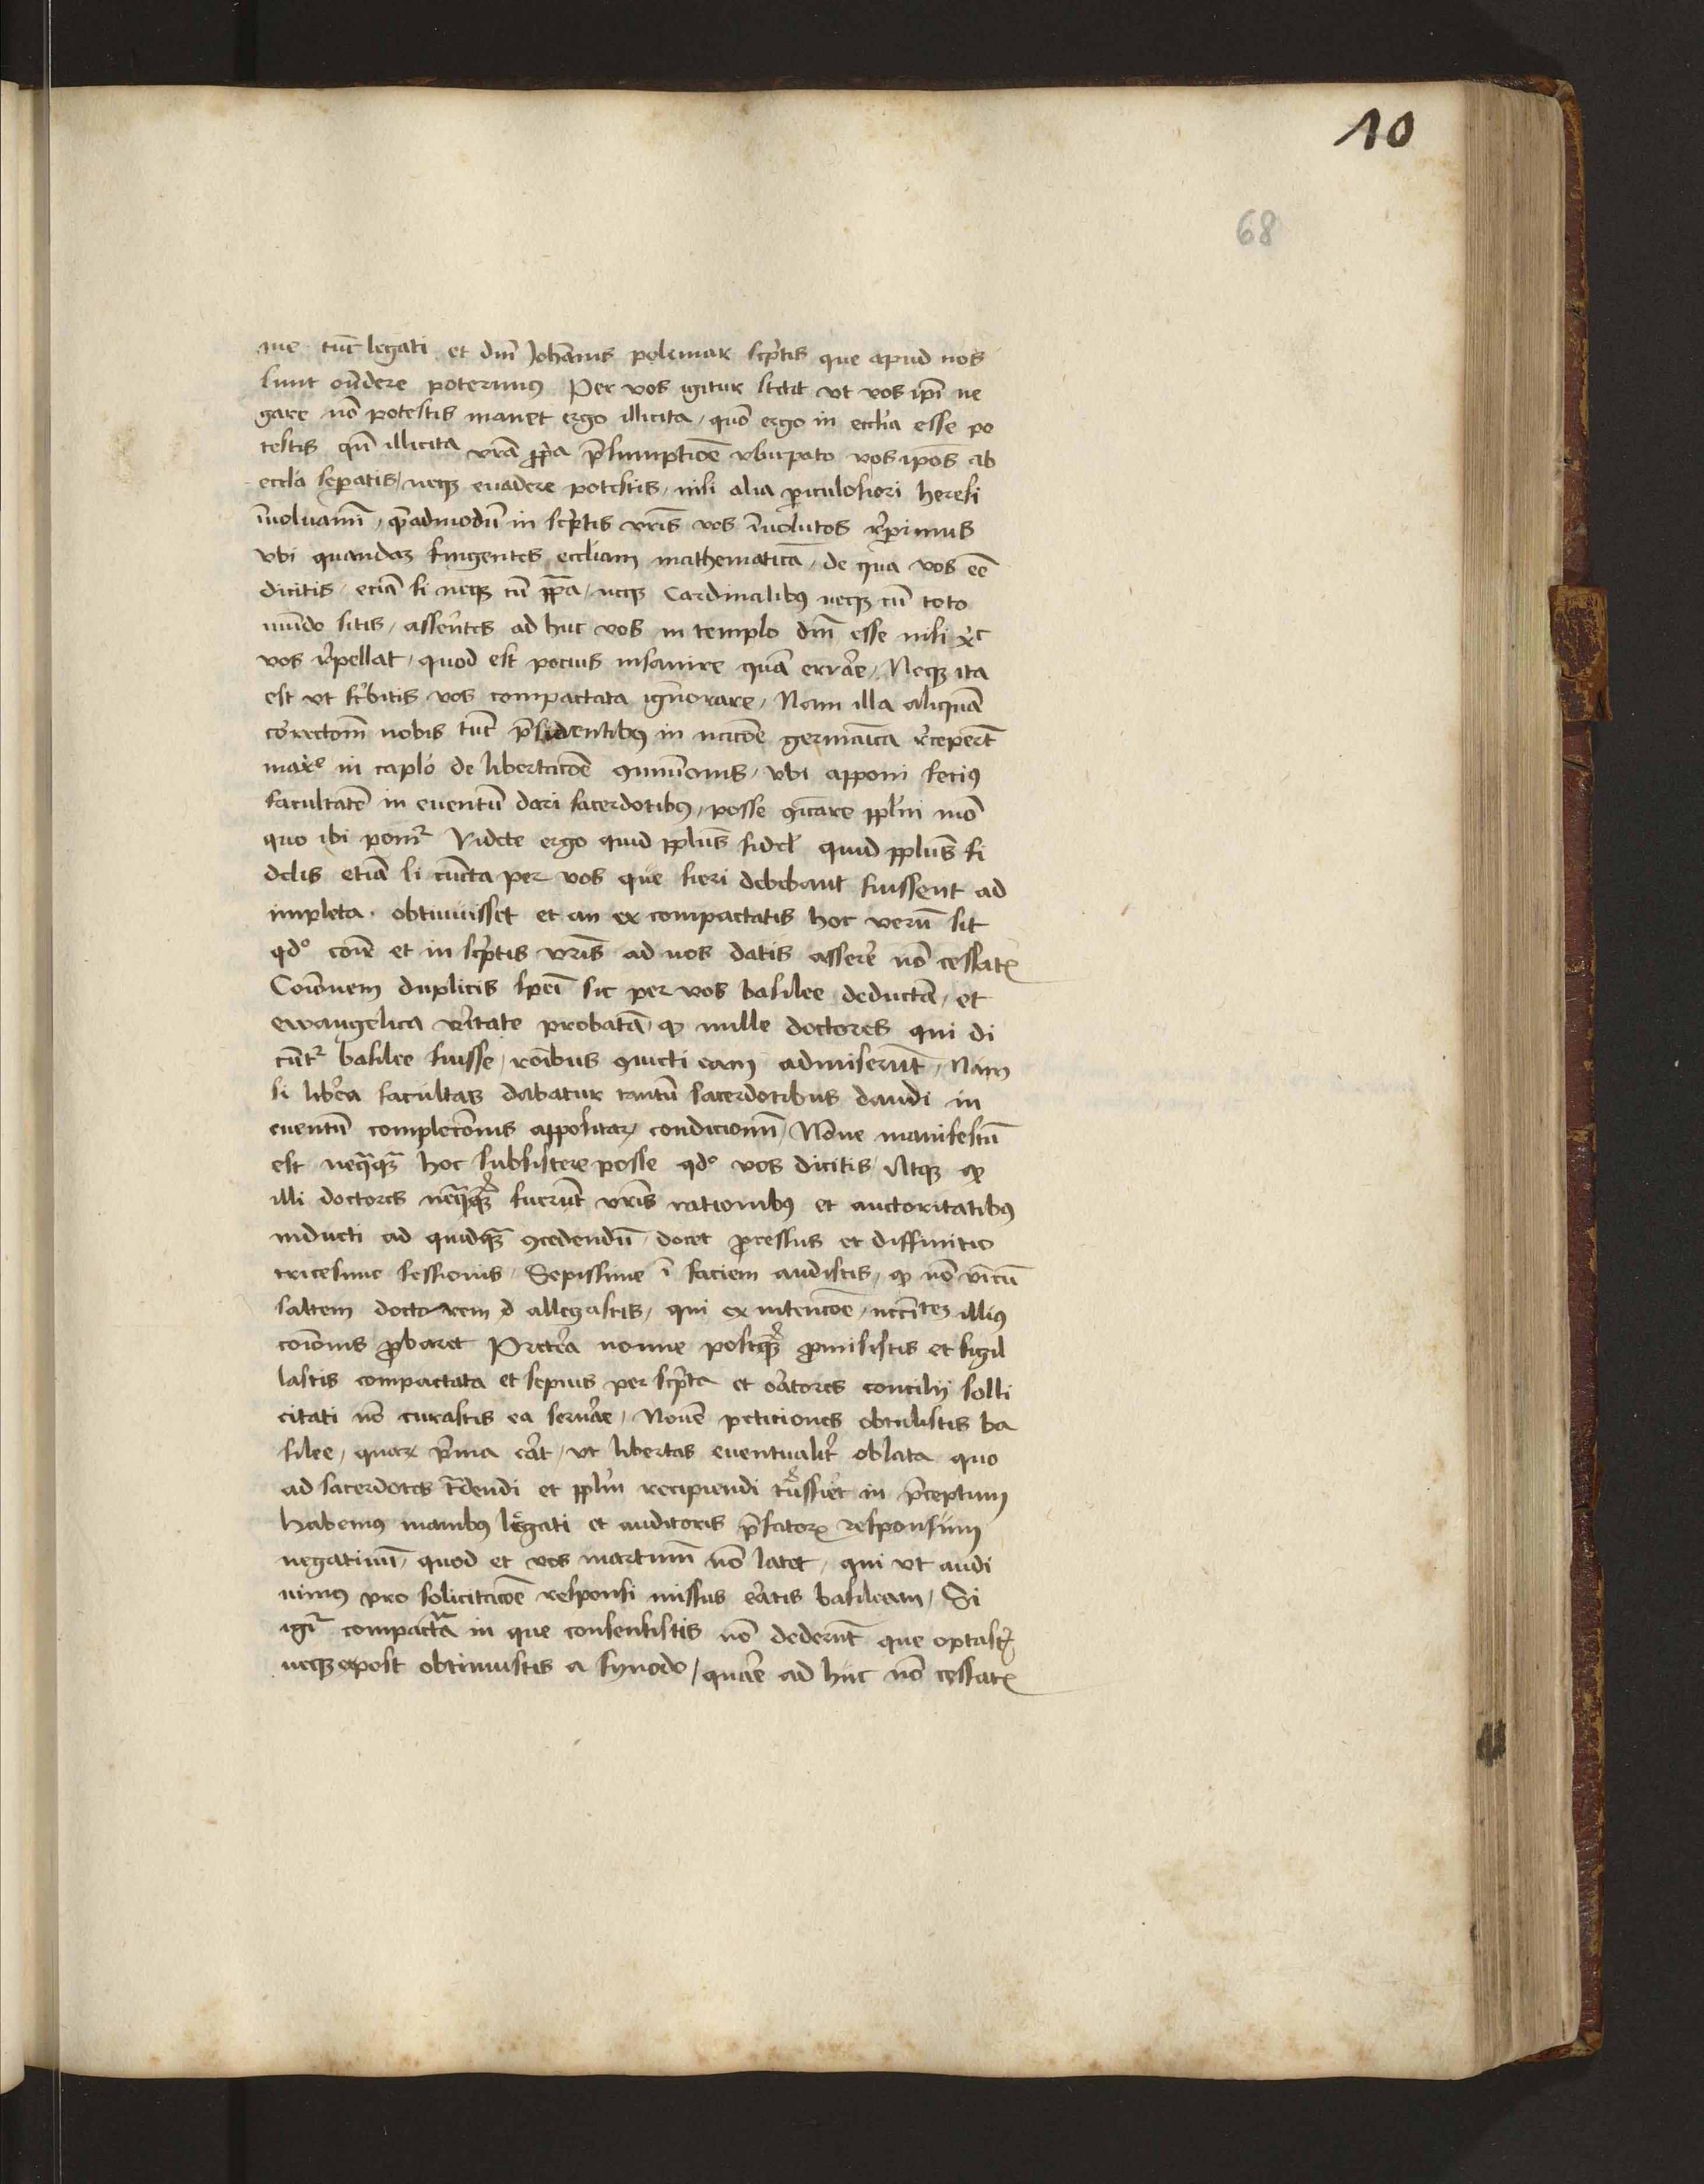 10
68
me tūc legati et dm̄ Johānis polemar sc̓ptis que apud nos
sunt oñdere poterimus Per vos igitur stetit vt vos ipī ne
gare nō potestis manet ergo illicita, quō ergo in ecclīa esse po
testis qn̄ illicita vr̄a ꝓp̄a p̄sumptiōe vsurpato vos ip̄os ab
eccl̄a sep̲atis, neqꝫ euadere potestis, nisi alia p̲iculosiori heresi
īuoluamī, q̄madmodū in sc̓ptis vr̄is vos īuolutos rep̲imus
vbi quandaꝫ fingentes eccl̄iam mathematicā, de qua vos eē
dicitis, eciā si neqꝫ cū pp̄a, neqꝫ Cardinalibꝰ neqꝫ cū toto
mūdo sitis, asserētes ad huc vos in templo dn̄i esse nisi xp̄c
vos repellat, quod est pocius insanire quā errare, Neqꝫ ita
est vt sc̓bitis vos compactata ignorare, Nam illa aliquā
correctōm nobis tūc p̄sidentibꝰ in nacōe germaīca recep̲ert̄
maxe in caplo de libertacōe ꝯmuīonis, vbi apponi fecimꝰ
facultatē in euentū dari sacerdotibꝰ, posse ꝯīcare ppl̄m mō
quo ibi ponit̄ Videte ergo quid ppl̄us fidel̄ quid ppl̄us fi
delis etiā si cūcta per vos que fieri debebant fuissent ad
impleta. obtinuisset et an ex compactatis hoc verū sit
qdº cōiē et in sc̓ptis vr̄is ad nos datis asserē nō cessatꝭ
Coīonem duplicis spēī sic per vos basilee deductā, et
ewangelica vẽritate probatā, ꝙ mille doctores qui di
cūtr̄ basilee fuisse, rōībus ꝯuicti eam admiserūt, Nam
si lib̓a facultas dabatur tantū sacerdotibus dandi in
euentū complecōnis appositaꝝ condicionū, Nōne manifestū
est neq̄qꝫ hoc subsistere posse qdº vos dicitis, Atqꝫ ꝙ
illi doctores neq̄qꝫ fuerūt vr̄is rationibꝰ et auctoritatibꝰ
inducti ad quidqꝫ ꝯcedendū, docet ꝓcessus et diffinitio
tricesime sessionis, Sepissime ī faciem audistis, ꝙ nō vnicū
saltem doctorem allegastis, qui ex intencōe, neccītēꝫ illiꝰ
coīonis ꝓbaret Pretea nonne postqꝫ ꝓmisistis et sigil
lastis compactata et sepius per sc̓pta et oratores concilij solli
citati nō curastis ea seruare, Nouē petitiones obtulistis ba
silee, quaꝝ p̓ma erāt, vt libertas eventualit̓ oblata quo
ad sacerdotes tradendi et ppl̄m recipiendi trāssiret in p̄ceptum
habemꝰ manibꝰ legati et auditoris p̄fatorꝝ responsum
negatiuū, quod et vos martinū nō latet, qui vt audi
uimꝰ pro solicitacōe responsi missus eratis basileam, Si
igr̄ compactā in que consensistis nō dederūt que optastꝭ
neqꝫ post obtinuistis a synodo, quare ad huc nō cessatꝭ